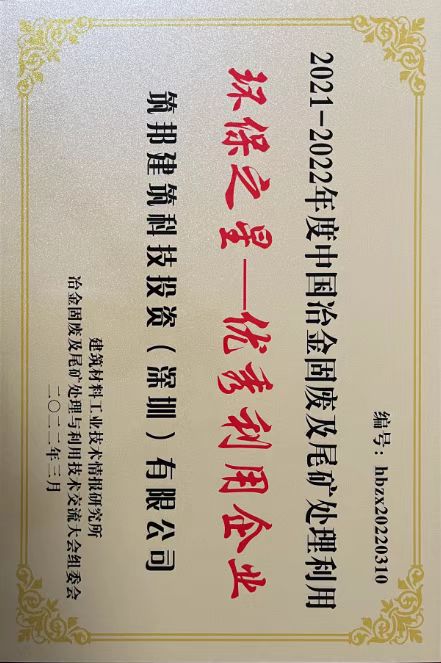 编号：hbzx20220310
2021-2022年度中国冶金固废及尾矿处理利用
环保之星—优秀利用企业
筑邦建筑科技投资（深圳）有限公司
建筑材料工业技术情报研究所
冶金固废及尾矿处理与利用技术交流大会组委会
二〇二二年三月